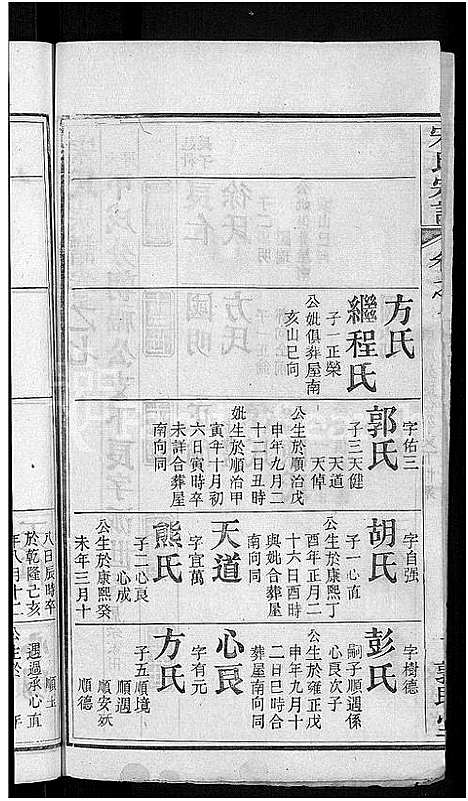 宋氏宗譜
方氏
繼程氏
子一正榮
公妣俱葬屋南
亥山巳向
字佑三
郭氏
子三天健
天道
天倬
公生於順治戊
申年九月二
十二日丑時
妣生於順治甲
寅年十月初
六日寅時卒
未詳合葬屋
南向同
字自強
胡氏
子一心直
公生於康熙丁
酉年正月二
十六日酉時
與妣合葬屋
南向同
天道
字宜萬
熊氏
子二心良
心成
公生於康熙癸
未年三月十
八日辰時卒
於乾隆己亥
年八月十二
字樹德
彭氏
嗣子順週係
心良次子
公生於雍正戊
申年九月十
二日巳時合
葬屋南向同
心良
字有元
方氏
子五順境
順週
順安妖
順德
順玉
週過承心直
公生於